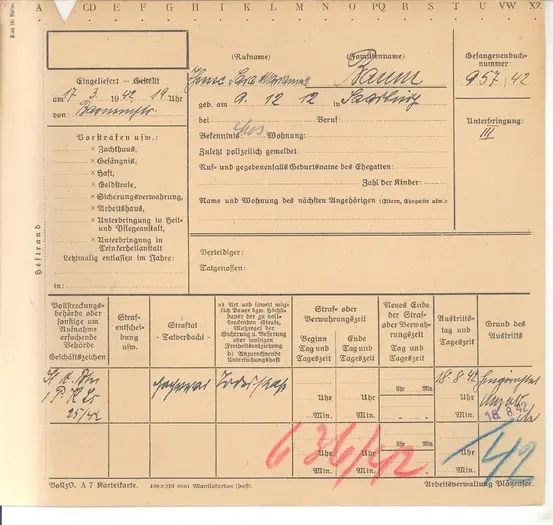 A CD E F G H I K L M N O PQ R S T U VW XZ
(Rufname) (Familienname)
Sara Marianne Baum
Gefangenenbuch-
nummer:
957/42
Eingeliefert — Gestellt
am 17 3. 1942 19 Uhr
von:
geb. am 9. 12 12 in Saarburg
bei Beruf:
Bekenntnis: Wohnung:
Zuletzt polizeilich gemeldet:
Ruf- und gegebenenfalls Geburtsname des Ehegatten:
Zahl der Kinder:
Name und Wohnung des nächsten Angehörigen (Eltern, Ehegatte usw.):
Unterbringung:
III
Vorstrafen usw.:
× Zuchthaus,
× Gefängnis,
× Haft,
× Geldstrafe,
× Sicherungsverwahrung,
× Arbeitshaus,
× Unterbringung in Heil-
und Pflegeanstalt,
× Unterbringung in
Trinkerheilanstalt
Letztmalig entlassen im Jahre:
in:
Heftrand
Verteidiger:
Tatgenossen:
Vollstreckungs-
behörde oder
sonstige um
Aufnahme
ersuchende
Behörde
Geschäftszeichen
Straf-
entschei-
dung
usw.
Straftat
- Tatverdacht -
a) Art und soweit mög-
lich Dauer bzw. Höchst-
dauer der zu voll-
streckenden Strafe,
Maßregel der
Sicherung u. Besserung
oder sonstigen
Freiheitsentziehung
b) Anzurechnende
Untersuchungshaft
Straf- oder
Verwahrungszeit
Beginn
Tag und
Tageszeit
Ende
Tag und
Tageszeit
Neues Ende
der Straf-
oder Verwah-
rungszeit
Tag und
Tageszeit
Austritts-
tag und
Tageszeit
Grund des
Austritts
Hochverrat Todesstrafe
18 8 42
25/42
Uhr Uhr Uhr Min. Uhr
Min. Min. Min.
18. 8. 42
636/42
/42
Uhr Uhr Uhr Min. Uhr
Min. Min. Min.
VollzO. A 7 Karteikarte. 148×210 mm Manilakarton (haft). Arbeitsverwaltung Plötzensee.